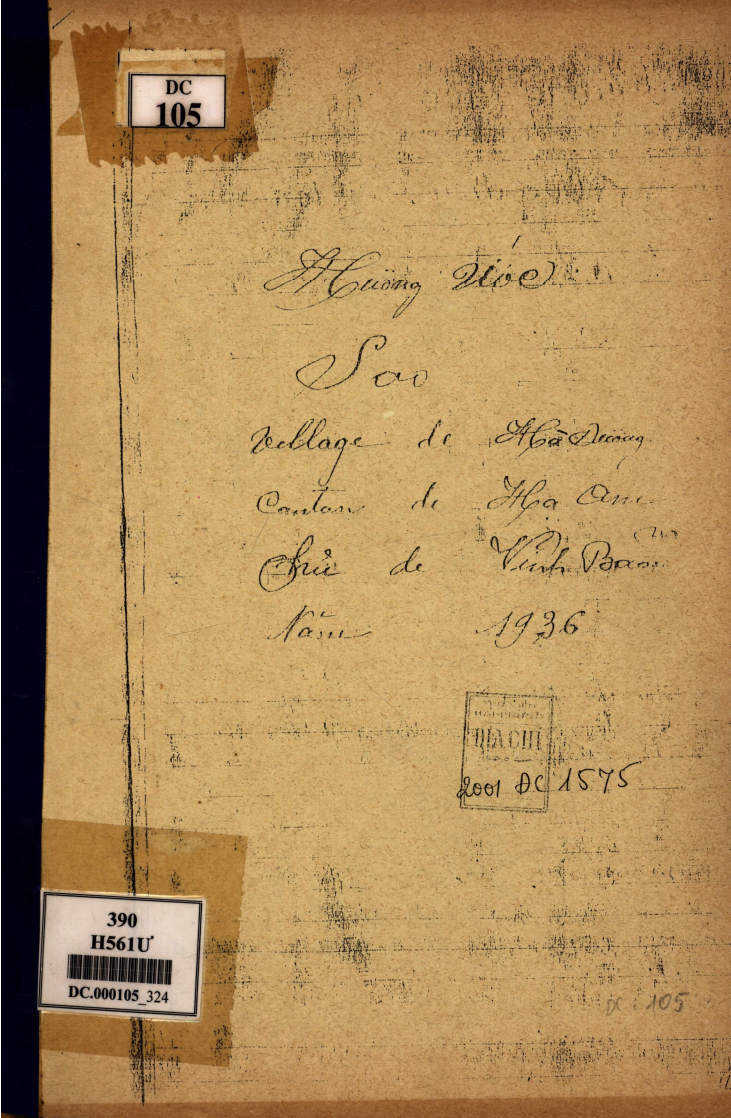 DC
105
Hương Ước
Sao
Village de Hà Dương
Canton de Hạ Am
Phủ de Vĩnh Bảo
Năm 1936
ĐỊA CHÍ
2001 ĐC 1575
390
H561Ư
DC.000105_324
DC. 105